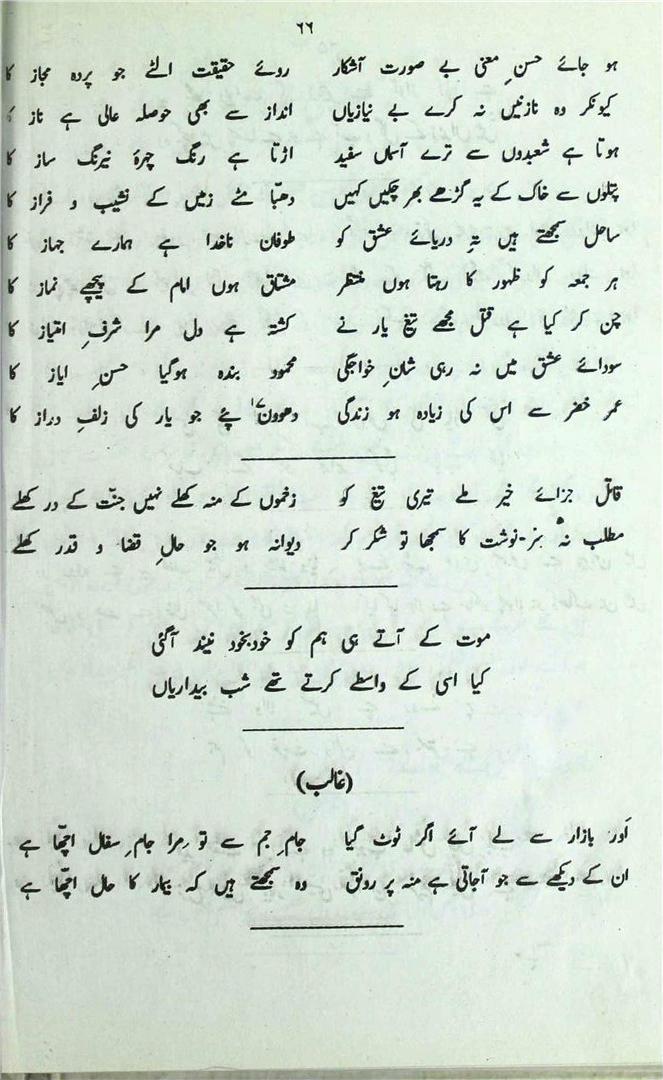 ٦٦
ہو جائے حسنِ معنی بے صورت آشکار روئے حقیقت الٹے جو پردہ مجاز کا
کیونکر وہ نازنیں نہ کرے بے نیازیاں انداز سے بھی حوصلہ عالی ہے ناز کا
ہوتا ہے شعبدوں سے ترے آسماں سفید اڑتا ہے رنگ چہرۂ نیرنگ ساز کا
پتلوں سے خاک کے یہ گڑھے بھر چکیں کہیں دھبّا مٹے زمیں کے نشیب و فراز کا
ساحل سمجھتے ہیں تہِ دریائے عشق کو طوفان ناخدا ہے ہمارے جہاز کا
ہر جمعہ کو ظہور کا رہتا ہوں منتظر مشتاق ہوں امام کے پیچھے نماز کا
چن کر کیا ہے قتل مجھے تیغِ یار نے کشتہ ہے دل مرا شرفِ امتیاز کا
سودائے عشق میں نہ رہی شانِ خواجگی محمود بندہ ہوگیا حسنِ ایاز کا
عمر خضر سے اس کی زیادہ ہو زندگی دھوون پئے جو یار کی زلفِ دراز کا
قاتل جزائے خیر ملے تیری تیغ کو زخموں کے منہ کھلے نہیں جنّت کے در کھلے
مطلب نہ سرنوشت کا سمجھا تو شکر کر دیوانہ ہو جو حالِ قضا و قدر کھلے
موت کے آتے ہی ہم کو خودبخود نیند آگئی
کیا اسی کے واسطے کرتے تھے شب بیداریاں
(غالب)
اَور بازار سے لے آئے اگر ٹوٹ گیا جامِ جم سے تو مِرا جامِ سفال اچّھا ہے
ان کے دیکھے سے جو آجاتی ہے منہ پر رونق وہ سمجھتے ہیں کہ بیمار کا حال اچّھا ہے